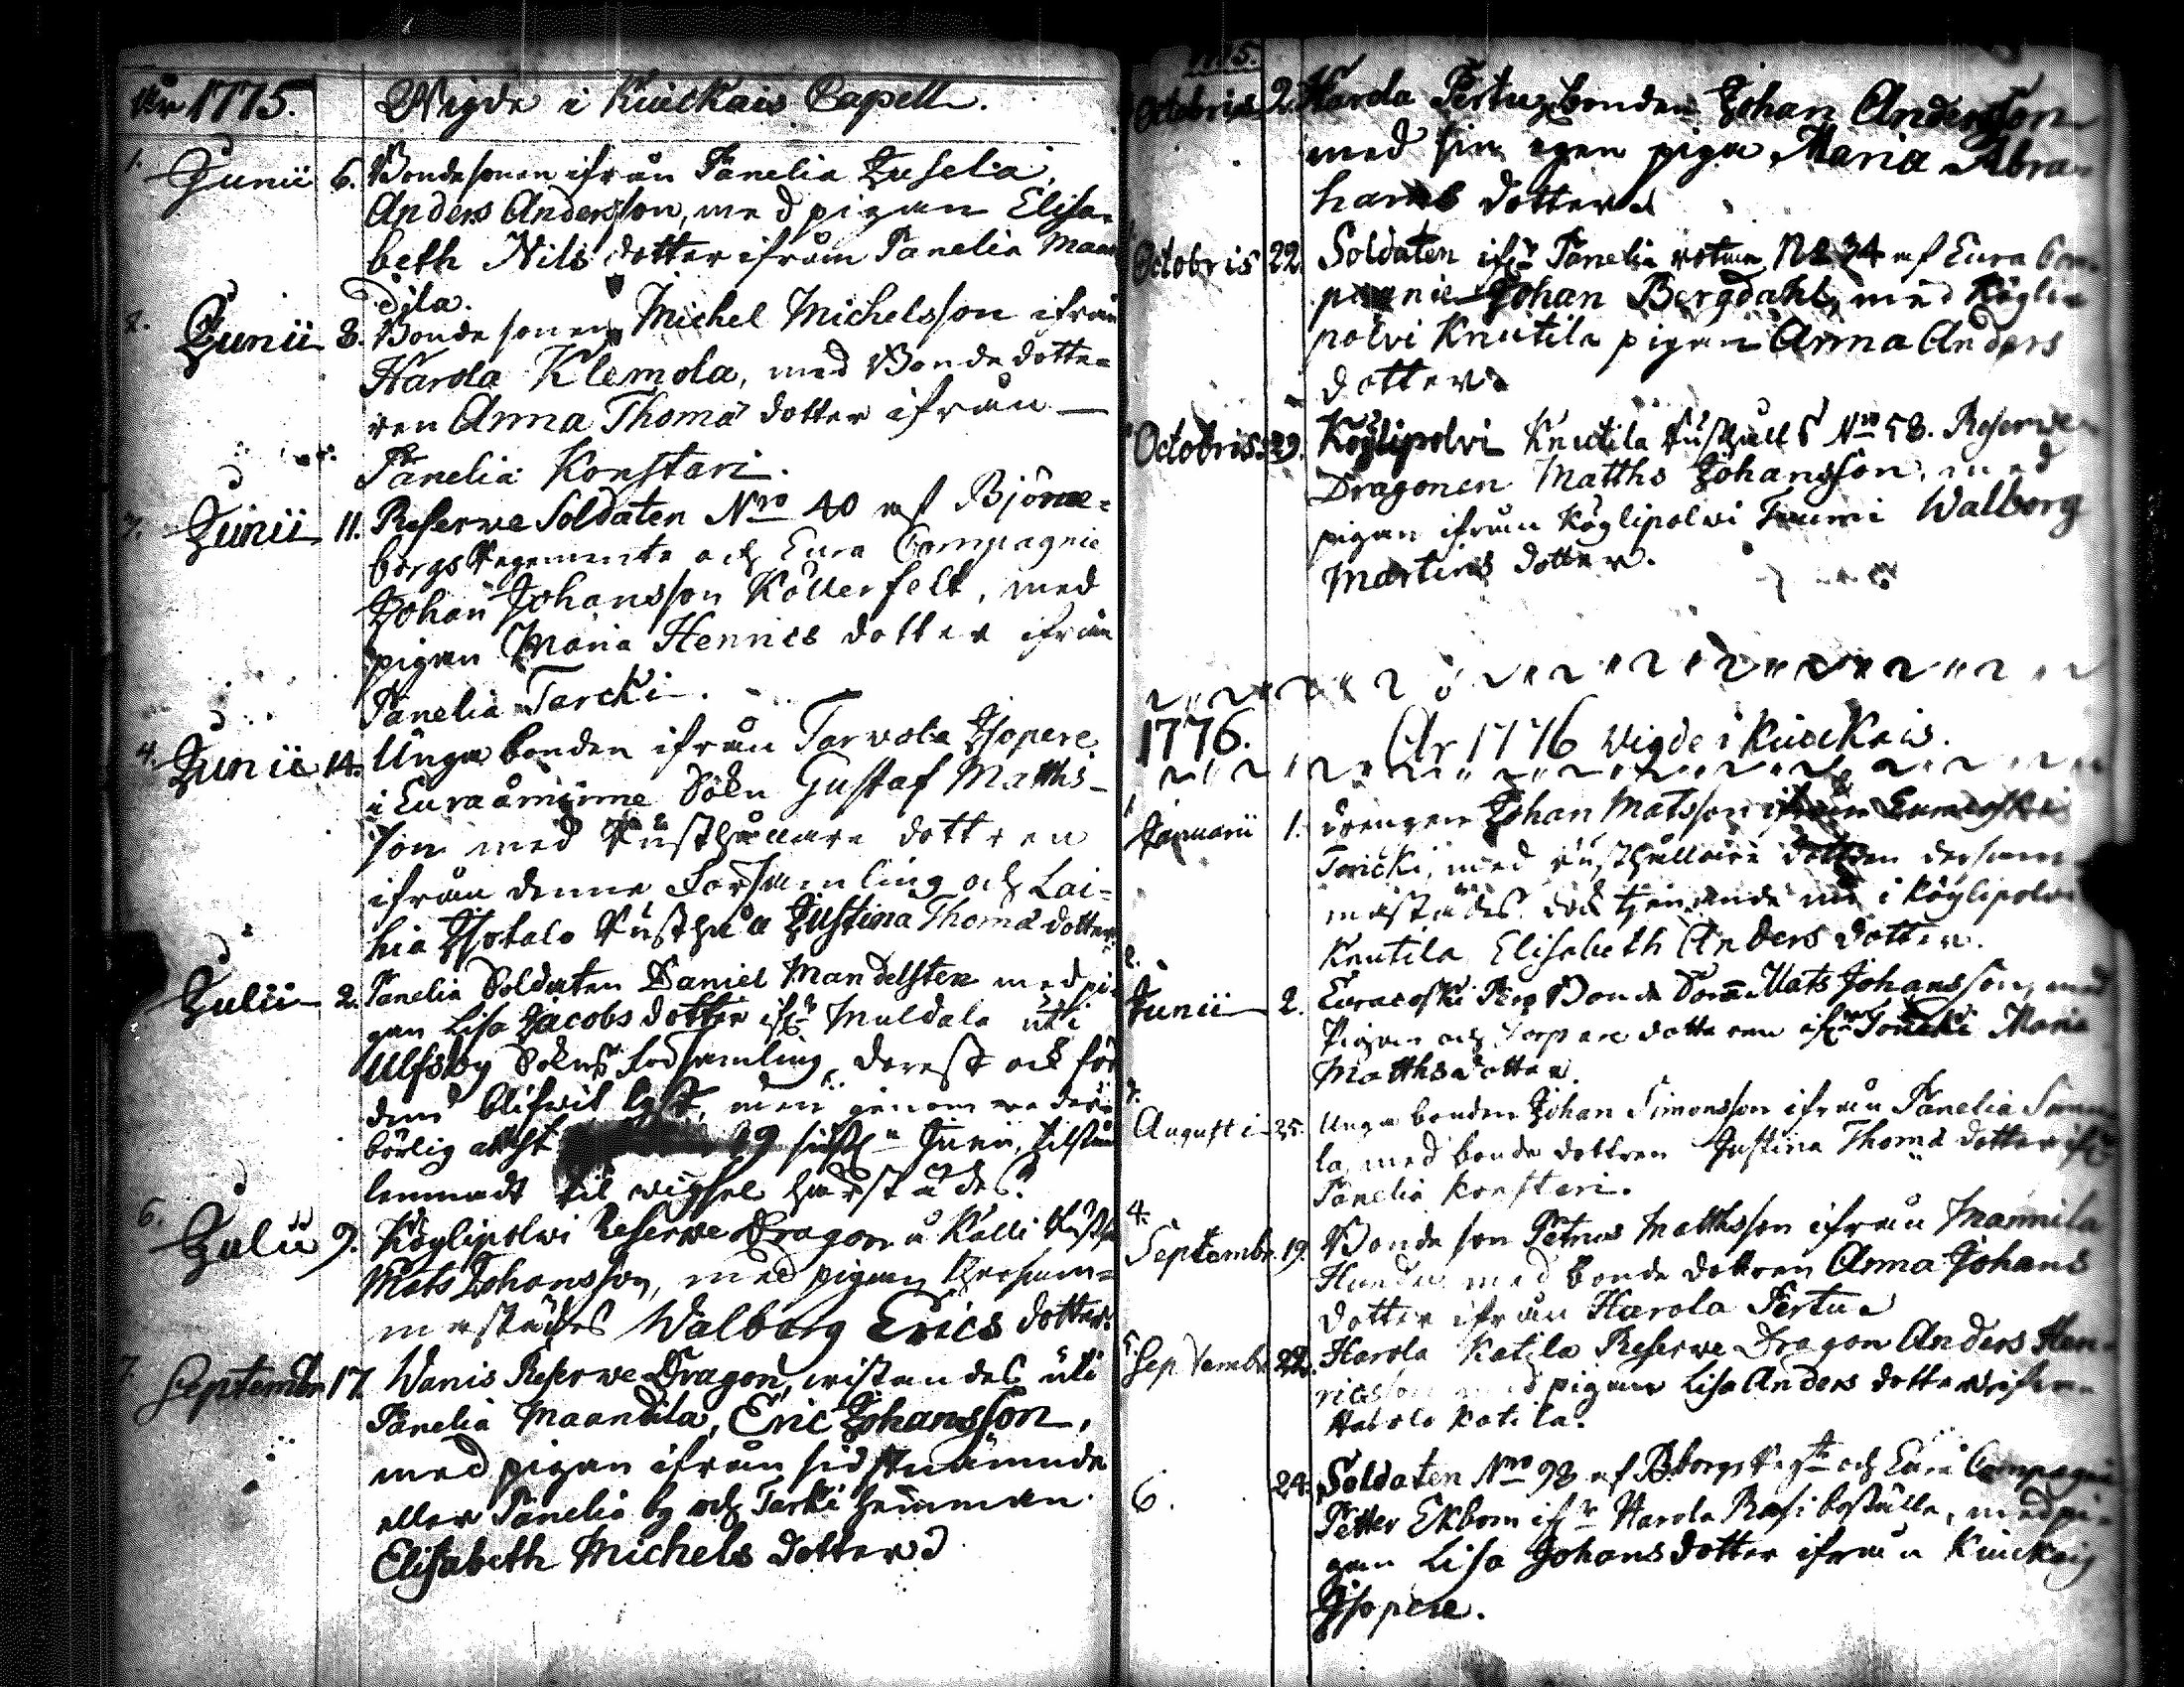 År 1775. Wigde i Kiuckais Capell.
1. Junii 6. Bondesonen ifrån Panelia Jusela,
Anders Andersson, med pigan Elisa-
beth Nils dotter ifrån Panelia Maan
dila.
2. Junii 8. Bonde sonen Michel Michelsson ifrån
Harola Klemola, med Bonde dotte-
ren Anna Thomä dotter ifrån
Panelia Konstari.
3. Junii 11. Reserve Soldaten Nro 40 af Björne-
borgs Regemente och Eura Compagnie
Johan Johansson Kållerfelt, med
pigan Maria Henrics dotter ifrån
Panelia Tarcki.
4. Junii 14. Unga bonden ifrån Tarvola Isopere
i Euraåminne Sokn Gustaf Matths-
son med Rusthållare dottren
ifrån denne Församling och Lai-
hia Isotalo Justina Thomä dotter.
Julii 2. Panelia Soldaten Daniel Mandelsten med pi-
gan Lisa Jacobs dotter ifrn Muldala uti
Ulfsby Sokns Församling, derest ock för
dem blifwit lyst, men genom
börlig attest 29 Junii, tilstånd
lemnadt til wigsel härstädes.
6. Julii 9. Köylipolwi Reserve Dragon å Kalli
Mats Johansson, med pigan dersam-
mastädes Walborg Erics dotter.
7. Septembr. 17. Wanis Reserve Dragon, wistandes uti
Panelia Maandila, Eric Johansson,
med pigan ifrån sidstnämnde
eller Panelia by och Tarki hemman
Elisabeth Michels dotter
1775.
Octobris 2. Harola Pertu bonden Johan Andersson
med sin egen piga Maria Abra-
hams dotter
Octobris 22. Soldaten ifrn Panelia rotan No 34 af Eura Com-
pagnie Johan Bergdahl, med Köylie
polvi Knutila pigan Anna Anders
dotter
Octobris 29. Köylipolvi Knutila Rusthålls Nro 58. Reserve
Dragonen Matths Johansson, med
pigan ifrån Köylipolvi Walborg
Martins dotter.
1776. År 1776 wigde i Kiuckais.
1. Januarii 1. drengen Johan Matsson ifrån
Toricki, med rusthållare dottren dersam-
mastädes och tjenande nu i Köylipolvi
Knutila Elisabeth Anders dotter.
2. Junii 2. Euracoski Bonde Son Mats Johansson, med
Pigan och Torpare dotteren ifrn Maria
Matthsdotter.
3. Augusti 25. Unga bonden Johan Simonsson ifrån Panelia
la, med bonde dottren Justina Thomä dotter ifrn
Panelia Konstari.
4. Septembr. 19. Bonde son Petrus Matthsson ifrån Mannila
med bonde dottren Anna Johans
dotter ifrån Harola Pertu
5. Septembr. 22. Harola Katila Reserve Dragon Anders Hen-
ricsson med pigan Lisa Anders dotter ifrån
Harola Katila.
6. 24. Soldaten Nro 98 af Bborgs och Eura Compagnie
Petter Ekbom ifrn Harola boställe, med pi-
gan Lisa Johans dotter ifrån Kiuckais
Isopere.